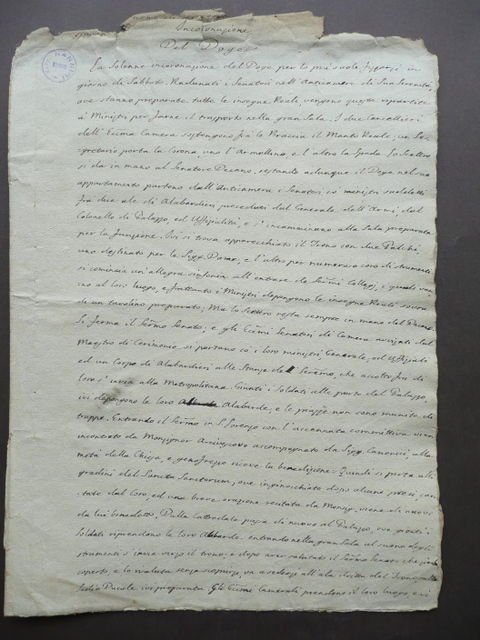 Incoronazione
Del Doge
La Solenne incoronazione del Doge per lo più suole farsi in
giorno di Sabbato. Radunati i Senatori nell'Anticamera di Sua Serenità,
ove stanno preparate tutte le insegne Reale, vengono queste ripartite
à Ministri per farne il trasporto nella gran Sala. I due Cancellieri
dell'Ecc.ma Camera sostengono frà le Braccia il Manto Reale, un Se-
gretario porta la Corona, uno l'Armellino, e l'altro la Spada. Lo Scettro
si dà in mano al Senatore Decano, restando adunque il Doge nel suo
appartamento partono dall'Anticamera i Senatori co' ministri sudetti
fra due ale di Alabardieri preceduti dal Generale dell'Armi, dal
Colonello di Palazzo, ed Uffizialità, e s'incamminano alla Sala preparata
per la funzione. Ivi si trova apparecchiato il Trono con due Palchi,
uno destinato per le Sigg. Dame, e l'altro per numeroso coro di strumenti
si comincia un'allegra sinfonia all'entrare de Ser.mi Collegj, i quali van-
no al loro luogo, e frattanto i Ministri depongono le insegne Reali sovra
di un tavolino preparato; Mà lo Scettro resta sempre in mano del Decano.
Si ferma il Ser.mo Senato; e gli Ecc.mi Senatori di Camera avvisati dal
Maestro di Cerimonie si portano co' loro ministri, Generale, ed Uffiziali
ed un Corpo di Alabardieri alle Stanze del Ser.mo, che accolto frà di
loro s'invia alla Metropolitana. Giunti i Soldati alle porte del Palazzo,
ivi depongono le loro Alabarde; e le piazze non sono munite di
truppe. Entrando il Ser.mo in S. Lorenzo con l'accennata committiva viene
incontrato da Monsignor Arcivescovo accompagnato da Sigg. Canonici alla
metà della Chiesa, e genuflesso riceve la benedizione. Quindi si porta alli
gradini del Sancta Sanctorum, ove inginocchiato dopo alcune preci, can-
tate dal Coro, ed una breve orazione recitata da Monsig. viene di nuovo
da lui benedetto. Dalla Cattedrale passa di nuovo al Palazzo, ove giunti i
Soldati riprendono le loro Alabarde, entrando nella gran Sala al suono degli
strumenti s'invia verso il trono, e dopo aver salutato il Ser.mo Senato che
coperto, e lo risaluta senza sorgere, và a sedersi all'ala destra del Trono sulla
Sedia Ducale ivi preparata. Gli Ecc.mi Camerali prendono il loro luogo, e i